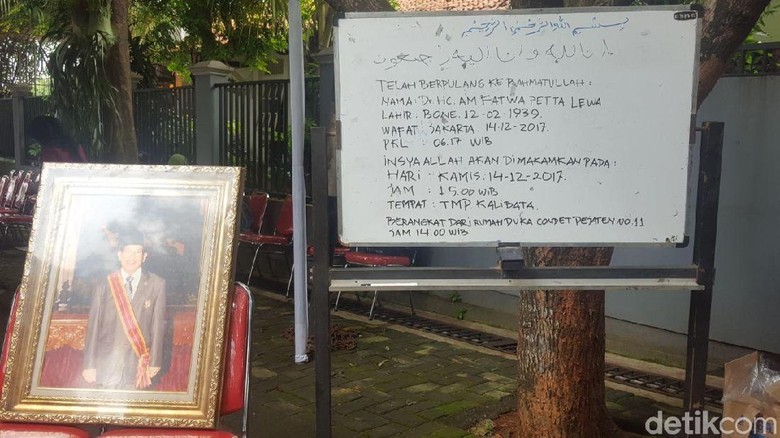 بسم الله الرحمن الرحيم
إنا لله وإنا إليه راجعون
TELAH BERPULANG KE RAHMATULLAH :
NAMA : Dr. HC. AM FATWA PETTA LEWA
LAHIR : BONE, 12-02-1939.
WAFAT : JAKARTA 14-12-2017.
PKL : 06.17 WIB
INSYA ALLAH AKAN DIMAKAMKAN PADA :
HARI : KAMIS. 14-12-2017.
JAM : 15.00 WIB
TEMPAT : TMP KALIBATA.
BERANGKAT DARI RUMAH DUKA CONDET PEJATEN NO.11
JAM 14.00 WIB
detikcom